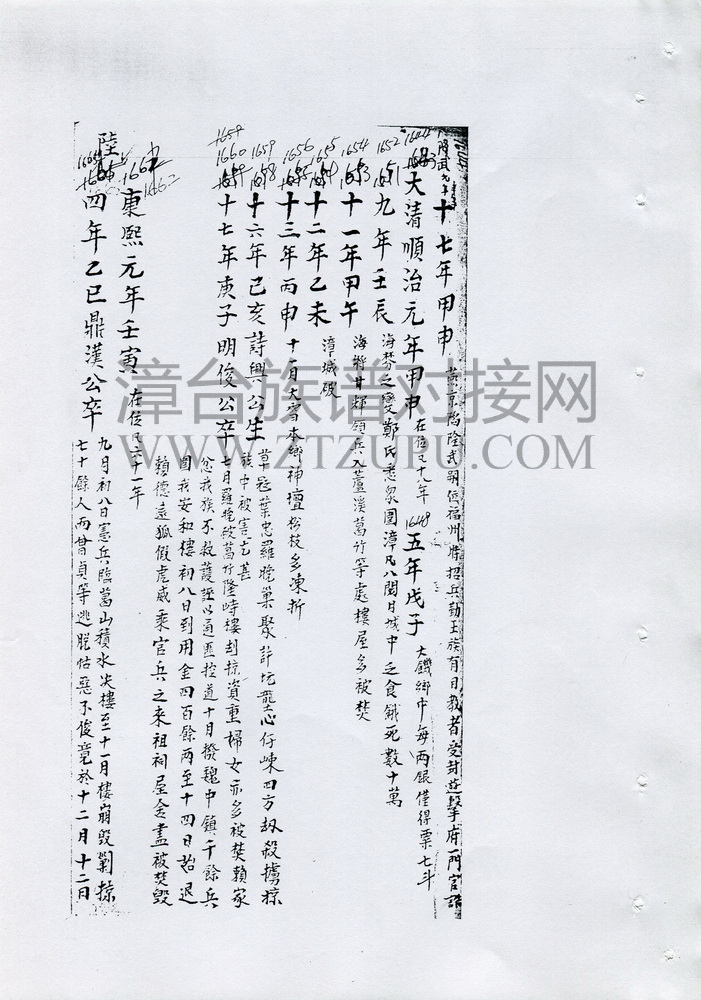 十七年甲申 燕京陷隆武嗣位福州時招兵勤王族有日教者受封遊擊府一門官誥
1644 大清順治元年甲申 在位凡十九年 1648 五年戊子 大饑鄉中每兩銀僅得票七斗
1652 九年壬辰 海焚之變鄭氏悉眾圍漳凡八閱月城中乏食餓死數十萬
1654 十一年甲午 海將甘輝領兵入蘆溪葛竹等處樓屋多被焚
1655 十二年乙未 漳城破
1656 十三年丙申 十一月大雪本鄉神壇松枝多凍折
1659 十六年己亥詩興公生 草冠葉忠羅晚巢聚許坑壟心仔崠四方劫殺擄掠族中被害尤甚
1660 十七年庚子明俊公卒 七月羅晚被葛竹隆峙樓刦掠資重婦女亦多被焚賴家
忿我族不救護誣以通匪控道十月撥魏中鎮千餘兵
圍我安和樓初八日到用金四百餘兩至十四日始退
賴德遠狐假虎威乘官兵之來祖祠屋舍盡被焚毀
1662 康熙元年壬寅 在位凡六十一年
陸 四年乙巳鼎漢公卒 九月初八日憲兵臨葛山積水尖樓至十一月樓崩毀剿掠
七十餘人而曾貞等逃脫怙惡不悛竟於十二月十二日
漳台族谱对接网
WWW.ZTZUPU.COM